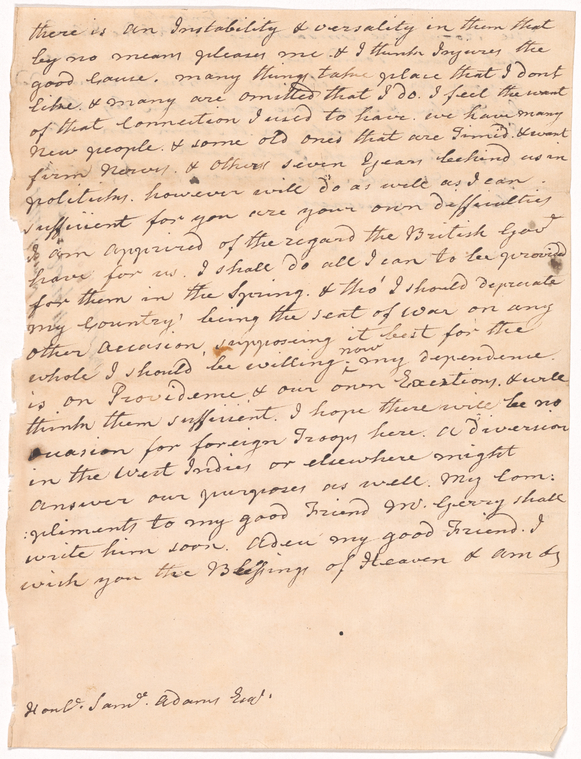 there is an Instability & versality in them that
by no means pleases me. & I think Injures the
good Cause. many things take place that I dont
like. & many are omitted that I do. I feel the want
of that Connection I used to have. we have many
New people. & some old ones that are Timid. & want
firm Nerves. & others seven Years behind us in
politicks. however will do as well as I can.
sufficient for you are your own defficulties
I am apprized of the regard the British Govt
have for us. I shall do all I can to be provided
for them in the Spring. & tho' I should depricate
my Country' being the seat of War on any
other occasion, supposing it best for the
whole I should be willing now my dependence.
is on Providence & our own Exertions, & will
think them sufficient. I hope there will be no
occasion for foreign Troops here. a diversion
in the West Indies or elsewhere might
answer our purposes as well. My Com:
:pliments to my good Friend Mr. Gerry shall
write him soon. Adeu my good Friend. I
wish you the Blessings of Heaven & am &
Honle. Saml. Adams Esqr.